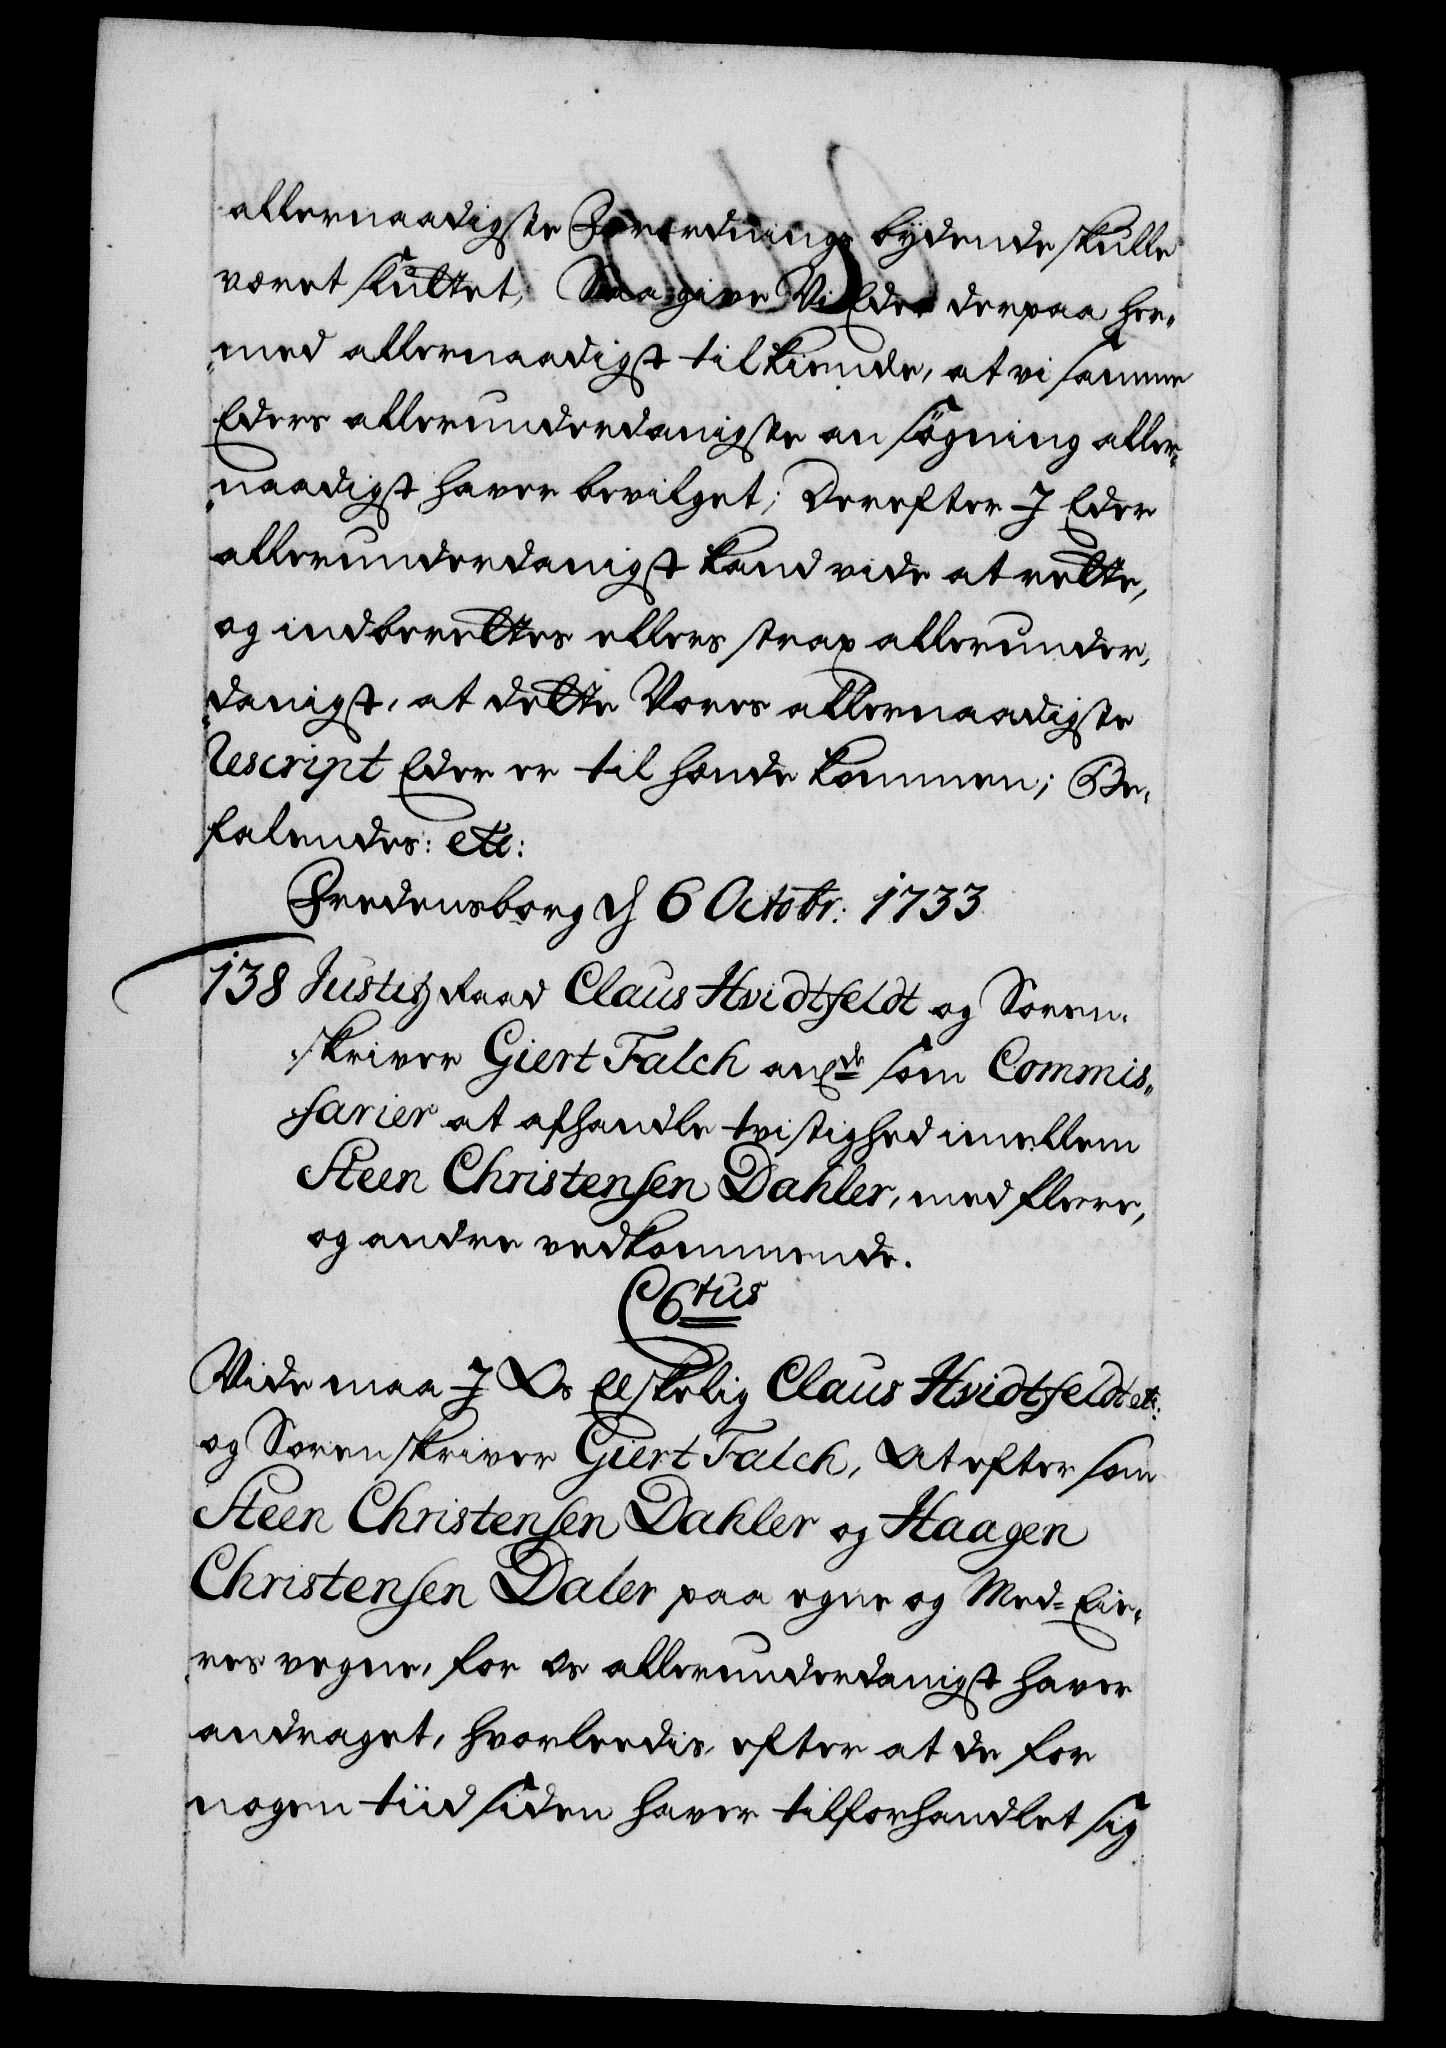 allernaadigste Forordnings bydende skulle
været skiftet, Saa give Vi Eder derpaa her-
med allernaadigst tilkiende, at vi samme
Eders allerunderdanigste ansøgning aller-
naadigst haver bevilget; Derefter I Eder
allerunderdanigst kand vide at rette,
og indberettes ellers strax allerunder-
danigst, at dette Vores allernaadigste
Rescript Eder er til hænde kommen; Be-
falendes: etc:
Fredensborg d 6 Octobr: 1733
138 Justitz Raad Claus Hvidtfeldt og Soren-
skriver Giert Falch som Commis-
sarier at afhandle tvistighed imellem
Steen Christensen Dahler, med flere,
og andre vedkommende.
C 6tus
Vide maa I Os Elskelig Claus Hvidtfeldt etc:
og Sorenskriver Giert Falch, At eftersom
Steen Christensen Dahler og Haagen
Christensen Daler paa egne og Med-Eie-
res vegne, for os allerunderdanigst haver
andraget, hvorledis, efter at de for
nogen tiid siden haver tilforhandlet sig